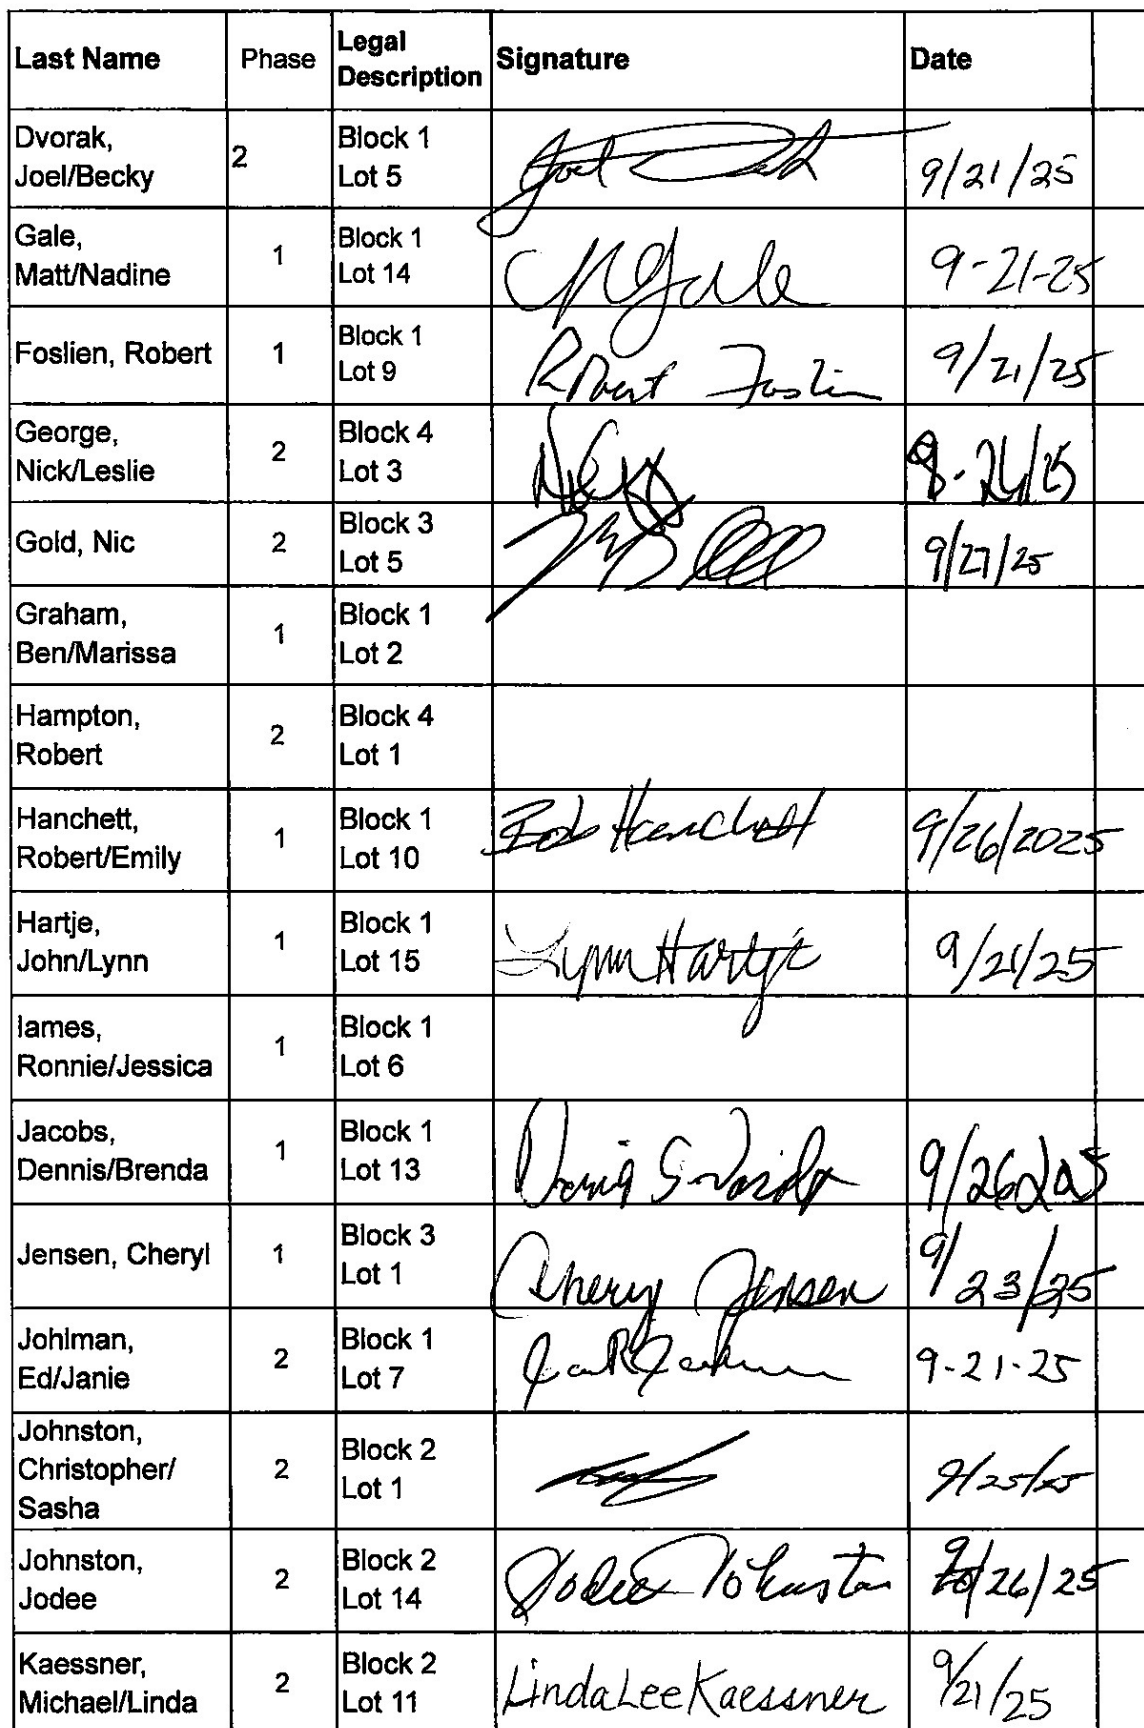 Last Name Phase Legal Description Signature Date
Dvorak, Joel/Becky 2 Block 1 Lot 5 Joel 9/21/25
Gale, Matt/Nadine 1 Block 1 Lot 14 N Gale 9-21-25
Foslien, Robert 1 Block 1 Lot 9 Robert Foslien 9/21/25
George, Nick/Leslie 2 Block 4 Lot 3
Gold, Nic 2 Block 3 Lot 5 9/27/25
Graham, Ben/Marissa 1 Block 1 Lot 2
Hampton, Robert 2 Block 4 Lot 1
Hanchett, Robert/Emily 1 Block 1 Lot 10 Bob Hanchett 9/26/2025
Hartje, John/Lynn 1 Block 1 Lot 15 Lynn Hartje 9/21/25
Iames, Ronnie/Jessica 1 Block 1 Lot 6
Jacobs, Dennis/Brenda 1 Block 1 Lot 13
Jensen, Cheryl 1 Block 3 Lot 1 Cheryl Jensen 9/23/25
Johlman, Ed/Janie 2 Block 1 Lot 7 9-21-25
Johnston, Christopher/ Sasha 2 Block 2 Lot 1 9/25/25
Johnston, Jodee 2 Block 2 Lot 14 Jodee Johnston 9/26/25
Kaessner, Michael/Linda 2 Block 2 Lot 11 Linda Lee Kaessner 9/21/25